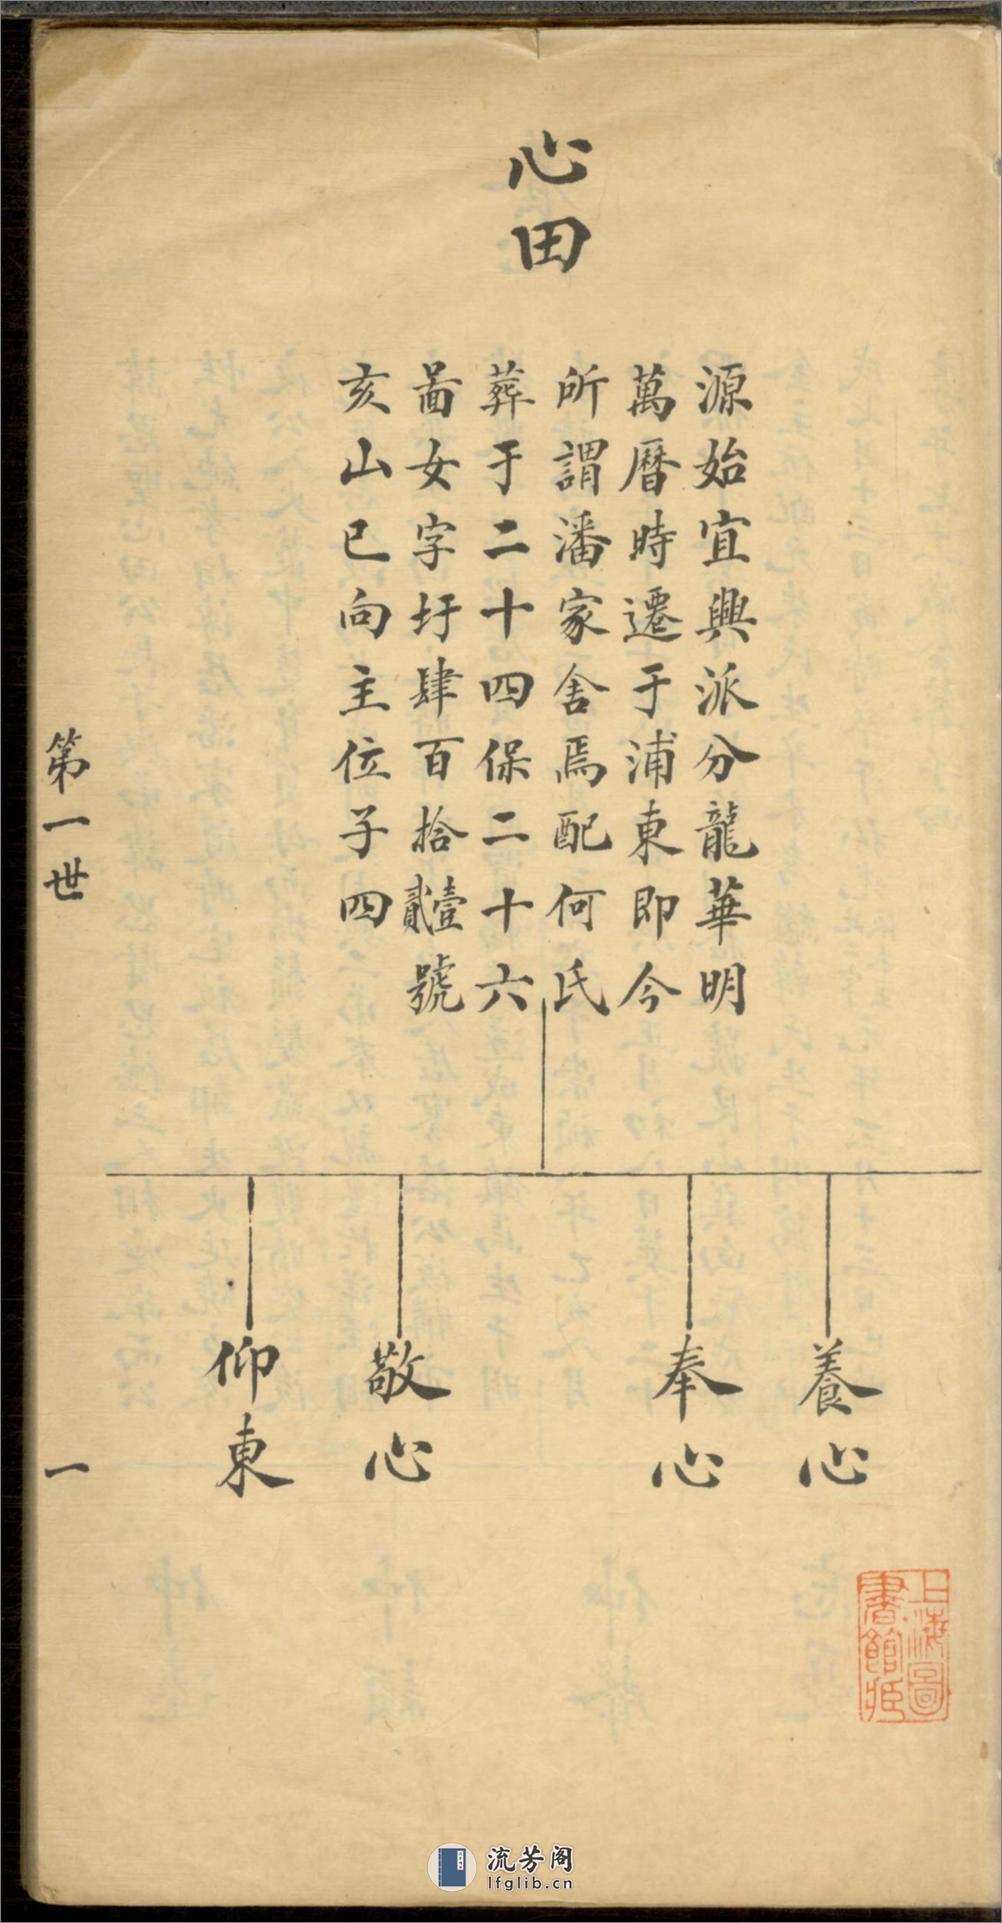 心田
源始宜興派分龍華明
萬曆時遷于浦東即今
所謂潘家舍焉配何氏
葬于二十四保二十六
啚女字圩肆百拾壹貳號
亥山巳向主位子四
養心
奉心
敬心
仰東
第一世
一
上海圖
書館藏
流芳阁
lfglib.cn